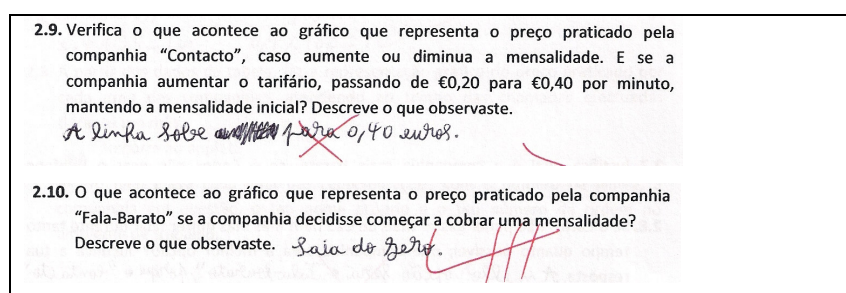 2.9. Verifica o que acontece ao gráfico que representa o preço praticado pela
companhia “Contacto”, caso aumente ou diminua a mensalidade. E se a
companhia aumentar o tarifário, passando de €0,20 para €0,40 por minuto,
mantendo a mensalidade inicial? Descreve o que observaste.
A linha sobe para 0,40 euros.
2.10. O que acontece ao gráfico que representa o preço praticado pela companhia
“Fala-Barato” se a companhia decidisse começar a cobrar uma mensalidade?
Descreve o que observaste. Saia do zero.